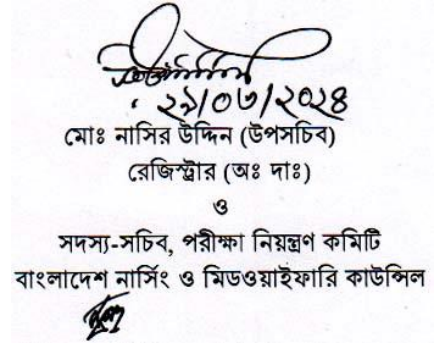 ২৯/০৩/২০২৪
মোঃ নাসির উদ্দিন (উপসচিব)
রেজিস্ট্রার (অঃ দাঃ)
ও
সদস্য-সচিব, পরীক্ষা নিয়ন্ত্রণ কমিটি
বাংলাদেশ নার্সিং ও মিডওয়াইফারি কাউন্সিল